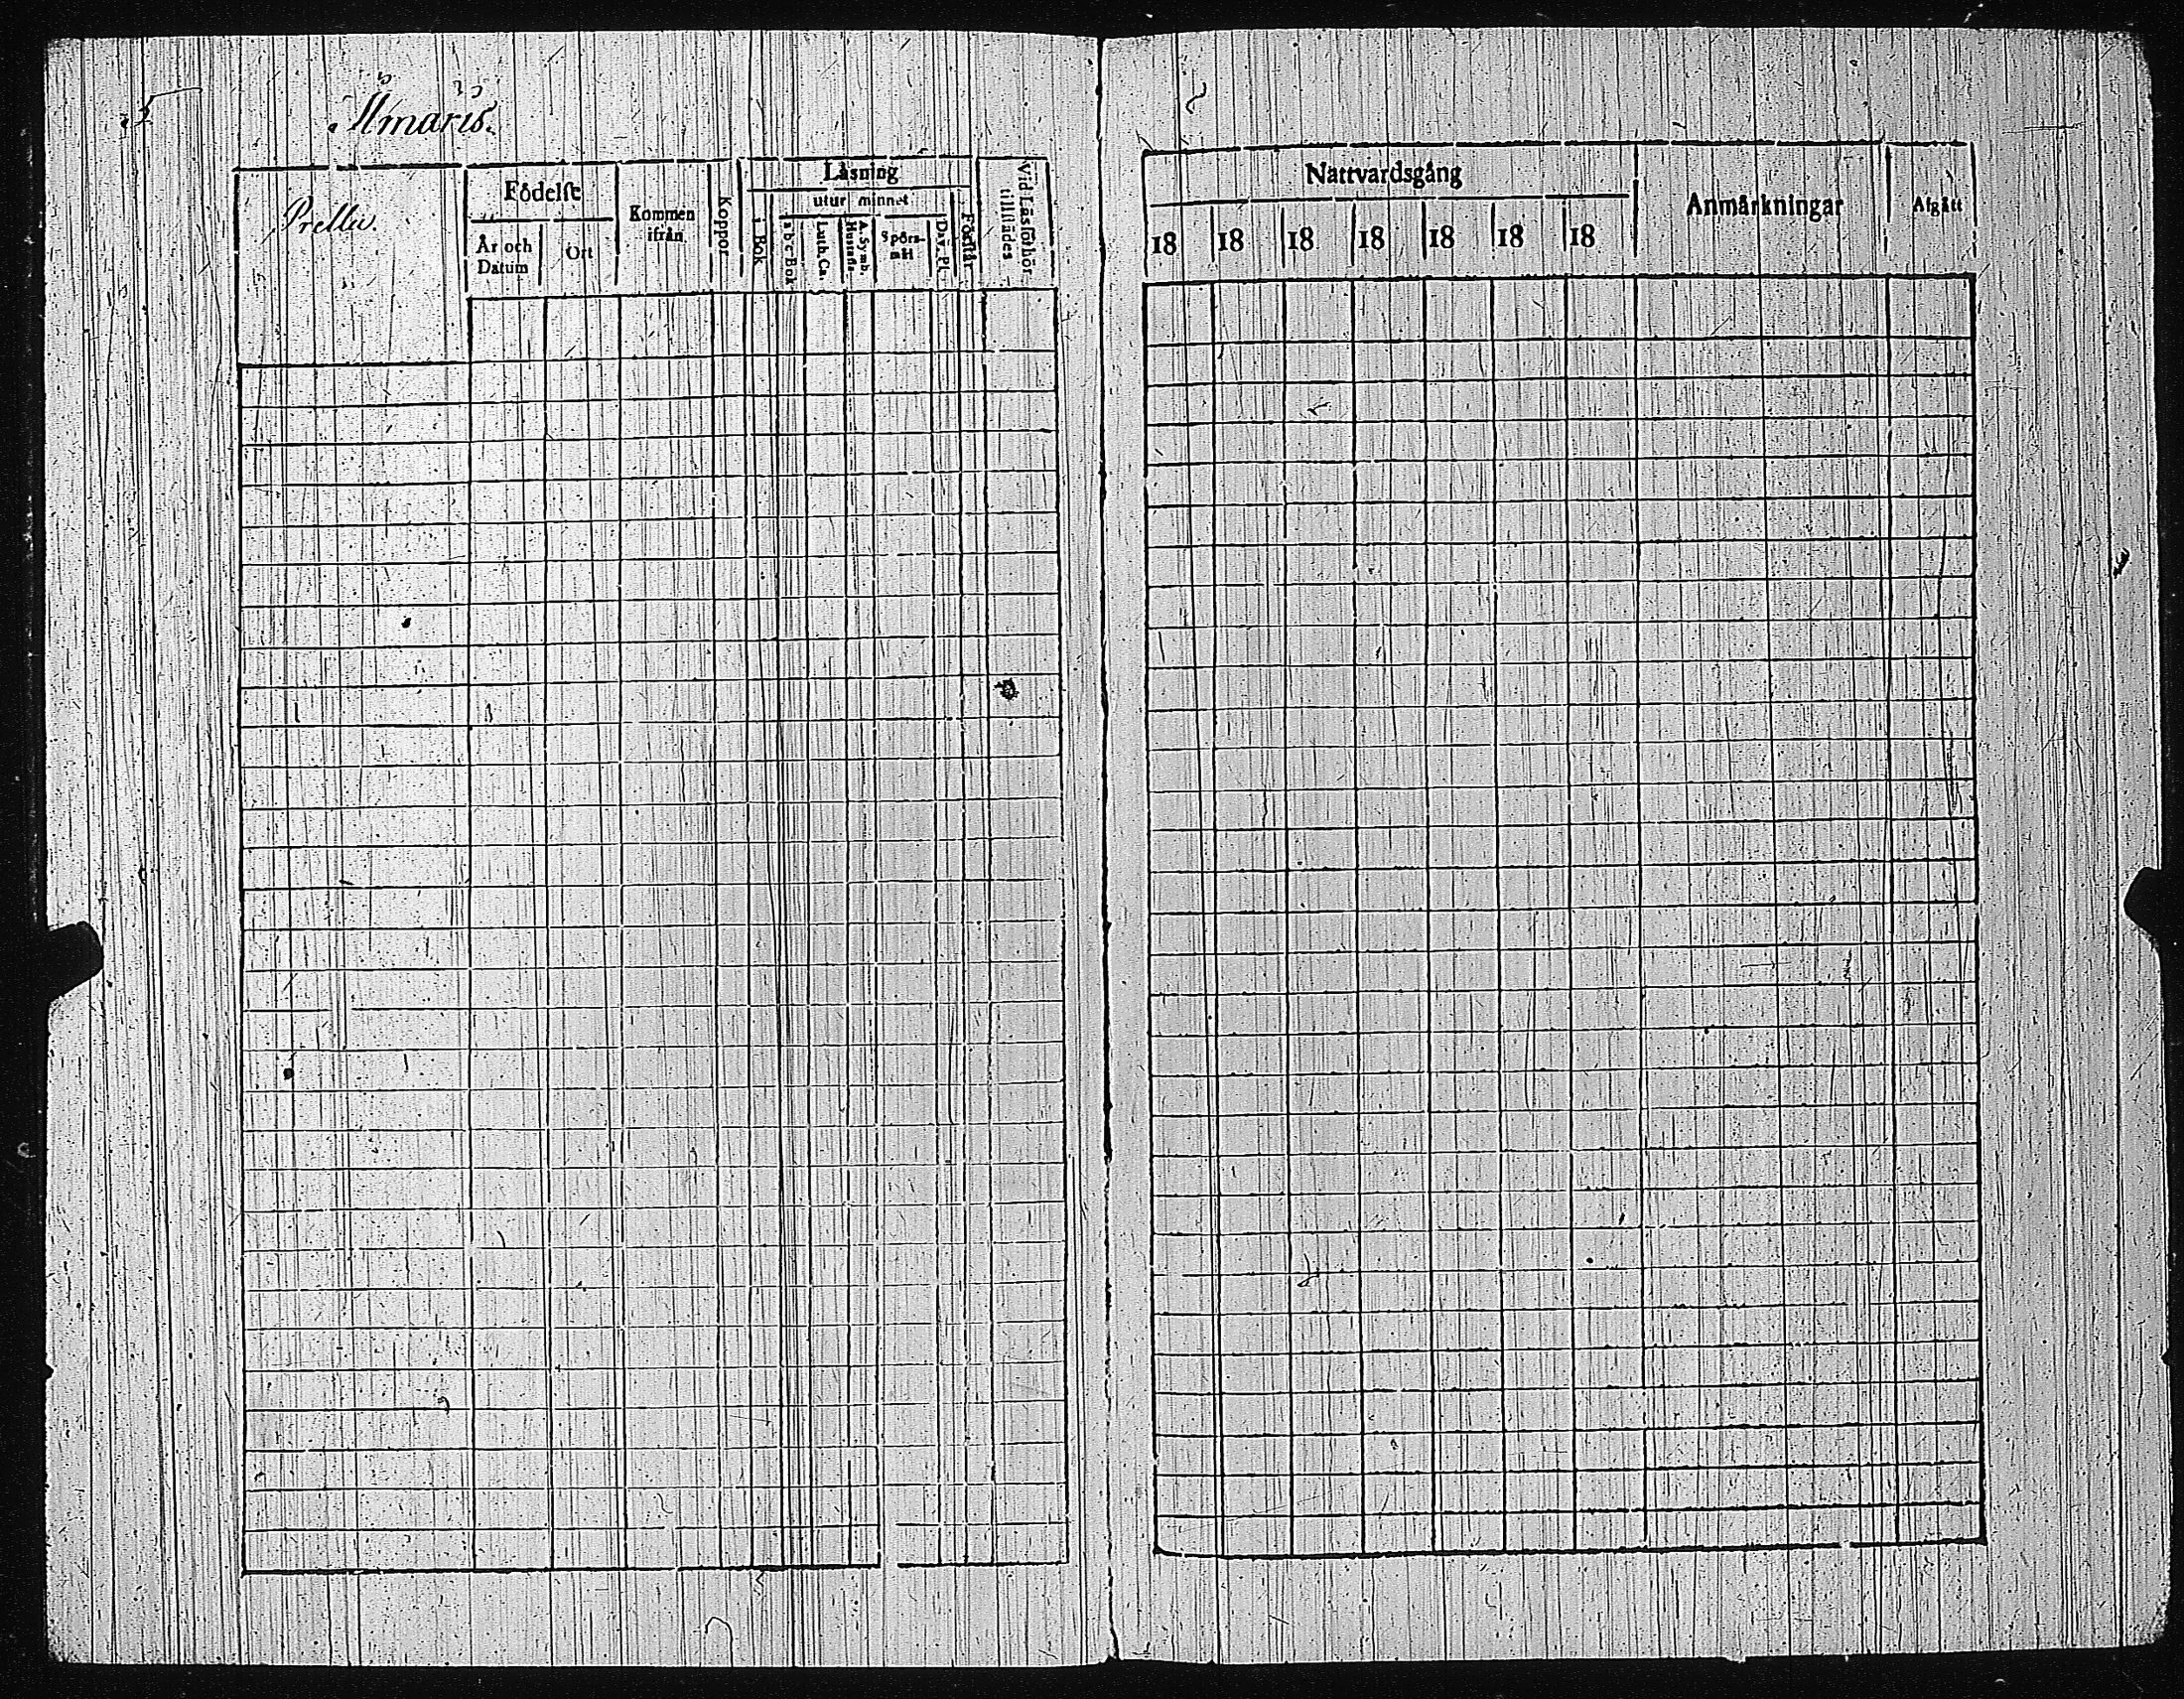 5
Ilmaris.
Prellu.
Födelse
År och Datum
Ort
Kommen ifrån
Koppor
Läsning
i Bok
utur minnet
a b c Bok
Luth. Ca.
A. Symb. Hustafla
Spörs-mål
Dav. Ps.
Förstår
Vid Läsförhör tillstädes
Nattvardsgång
18 18 18 18 18 18 18
Anmärkningar
Afgått